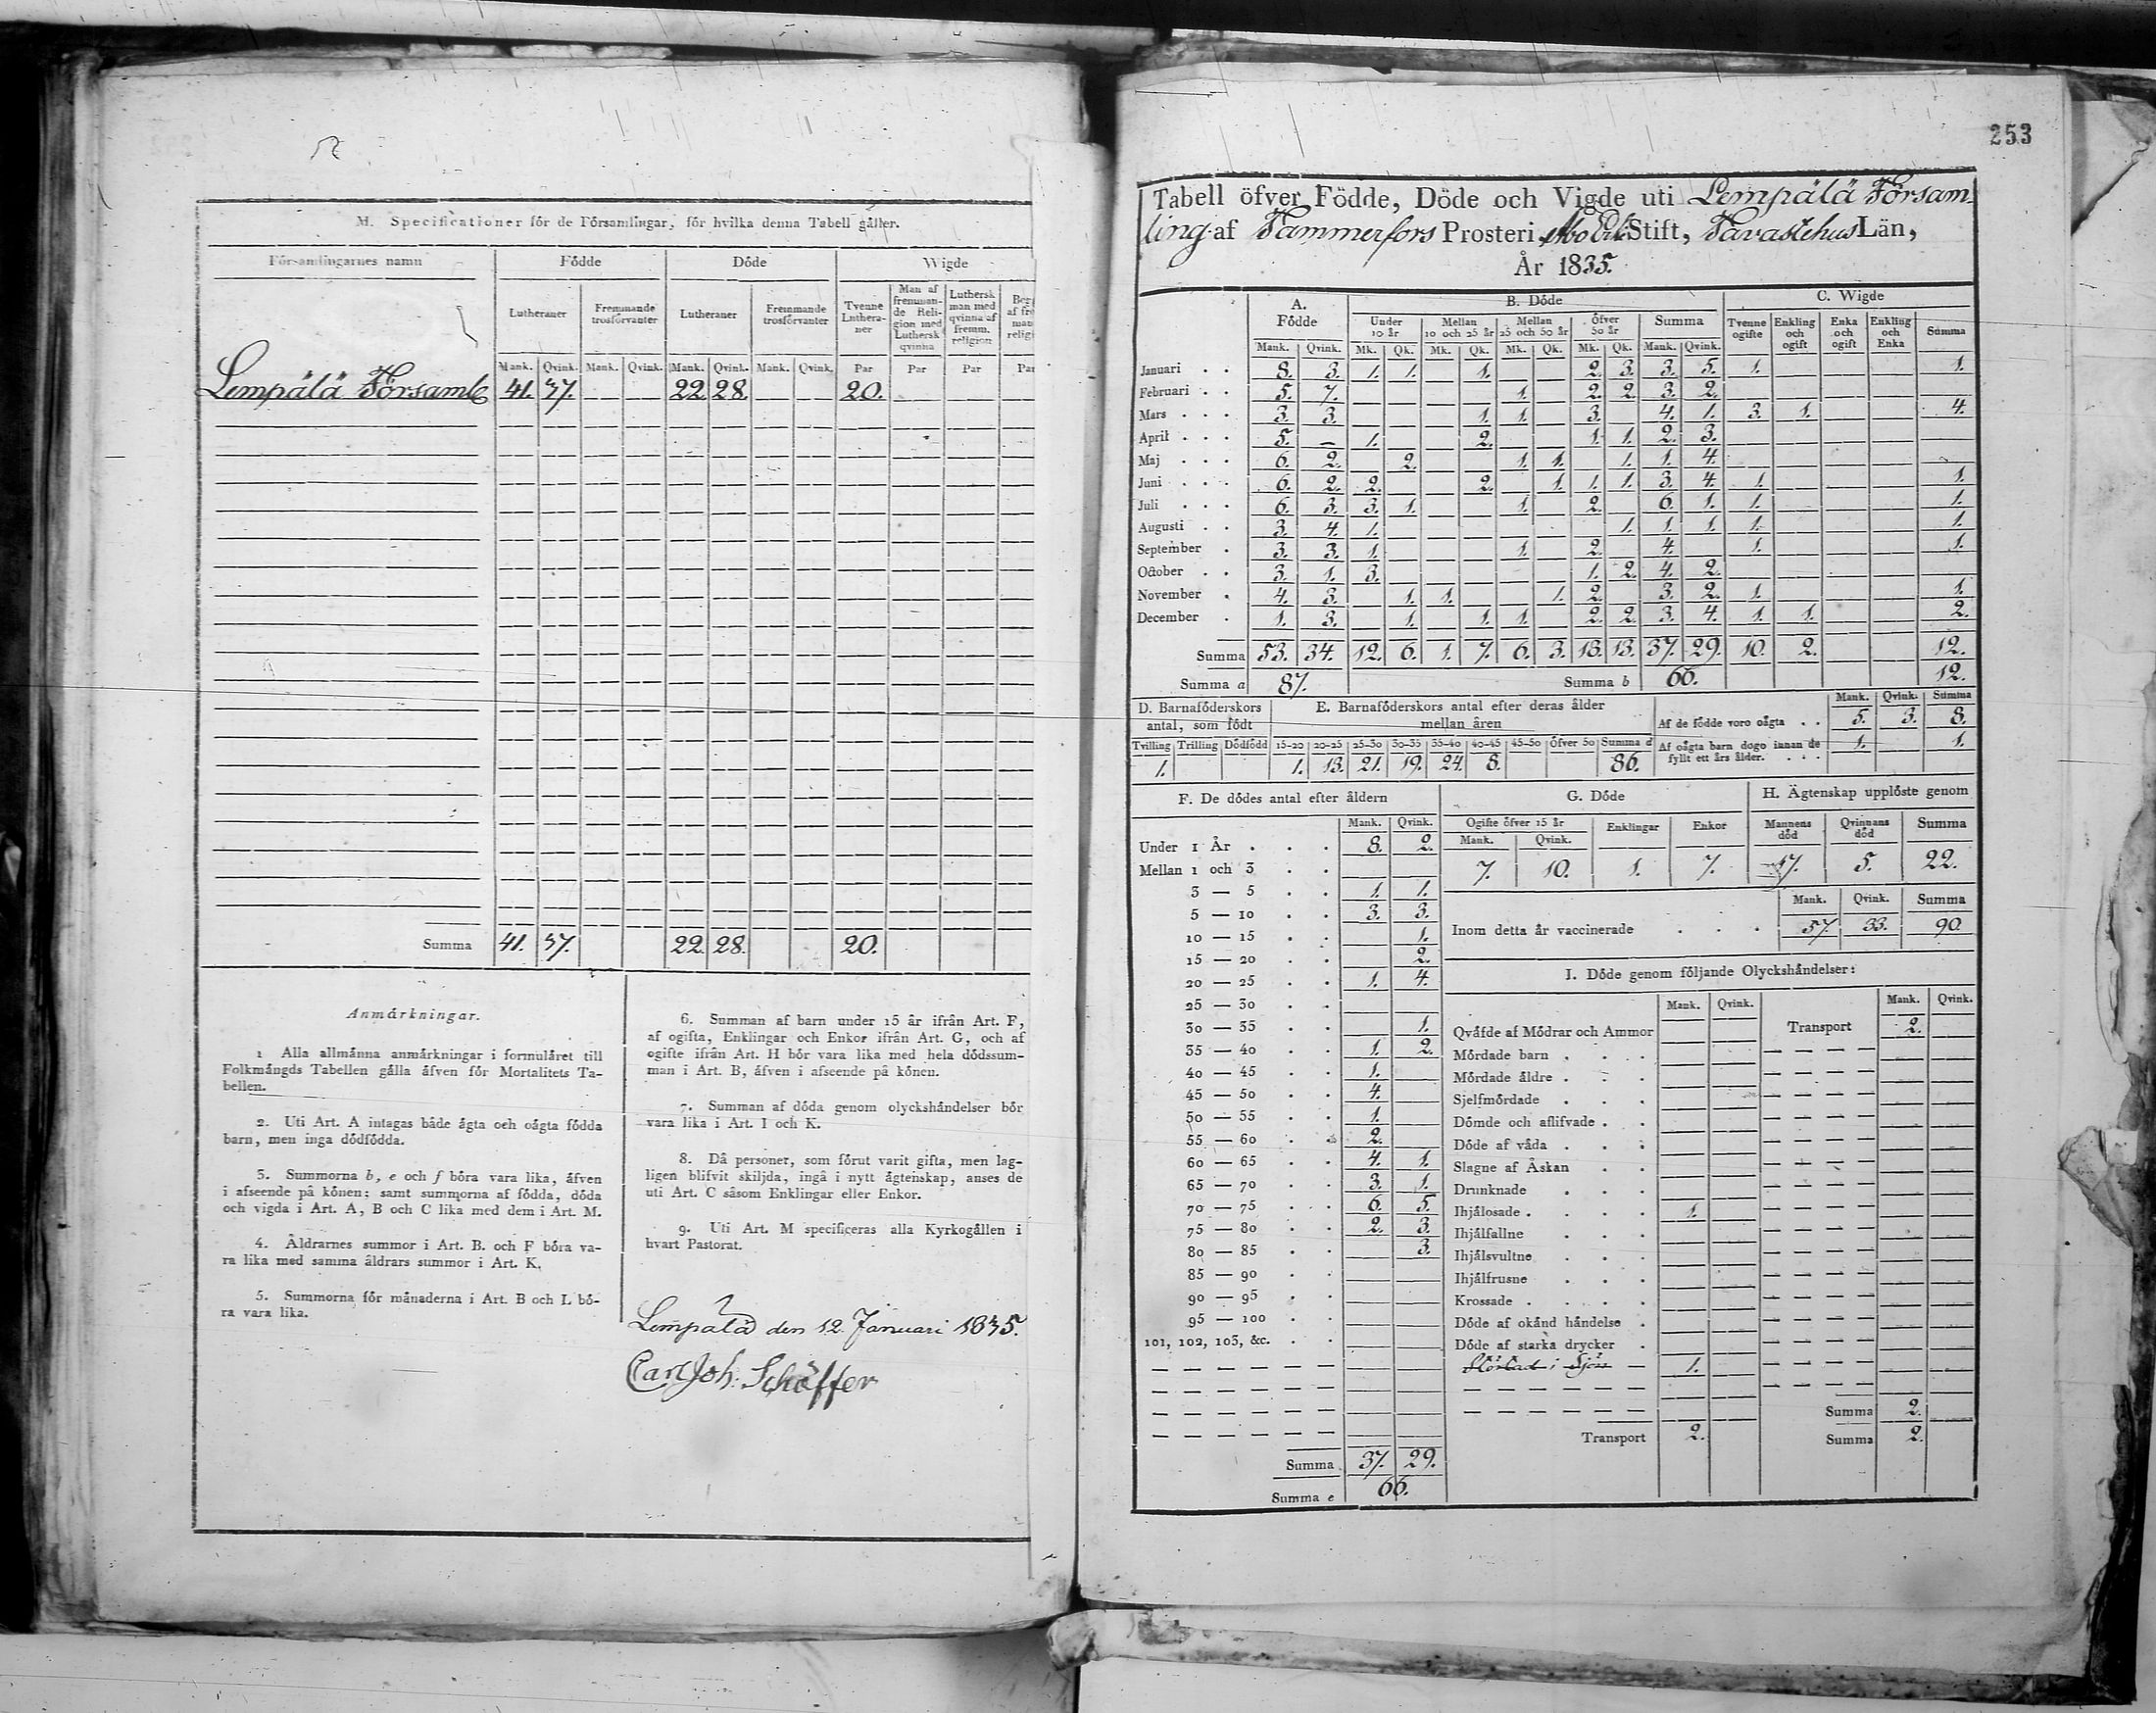 M. Specificationer för de Församlingar, för hvilka denna Tabell gäller.
Församlingarnes namn Födde Döde Wigde
Lutheraner Fremmande trosförvanter Lutheraner Fremmande trosförvanter Tvenne Lutheraner Man af fremmande Religion med Luthersk qvinna Luthersk man med qvinna af fremm. religion
Mank. Qvink. Mank. Qvink. Mank. Qvink. Mank. Qvink. Par Par Par Par
Lempälä Församl. 41. 37. — — 22. 28. — — 20.
Summa 41. 37. 22. 28. 20.
Anmärkningar.
1 Alla allmänna anmärkningar i formuläret till
Folkmängds Tabellen gälla äfven för Mortalitets Ta-
bellen.
2. Uti Art. A intagas både ägta och oägta födda
barn, men inga dödfödda.
3. Summorna b, e och f böra vara lika, äfven
i afseende på könen: samt summorna af födda, döda
och vigda i Art. A, B och C lika med dem i Art. M.
4. Åldrarnes summor i Art. B. och F böra va-
ra lika med samma åldrars summor i Art. K.
5. Summorna för månaderna i Art. B och L bö-
ra vara lika.
6. Summan af barn under 15 år ifrån Art. F,
af ogifta, Enklingar och Enkor ifrån Art. G, och af
ogifte ifrån Art. H bör vara lika med hela dödssum-
man i Art. B, äfven i afseende på könen.
7. Summan af döda genom olyckshändelser bör
vara lika i Art. I och K.
8. Då personer, som förut varit gifta, men lag-
ligen blifvit skiljda, ingå i nytt ägtenskap, anses de
uti Art. C såsom Enklingar eller Enkor.
9. Uti Art. M specificeras alla Kyrkogällen i
hvart Pastorat.
Lempälä den 12. Januari 1835.
Carl Joh. Schöffer
253
Tabell öfver Födde, Döde och Vigde uti Lempälä Församl
ling af Tammerfors Prosteri, Åbo Erke Stift, Tavastehus Län,
År 1835.
A. Födde B. Döde C. Wigde
Under 10 år Mellan 10 och 25 år Mellan 25 och 50 år Öfver 50 år Summa Tvenne ogifte Enkling och ogift Enka och ogift Enkling och Enka Summa
Mank. Qvink. Mk. Qk. Mk. Qk. Mk. Qk. Mk. Qk. Mank. Qvink.
Januari . . 8. 3. 1. 1. 1. 2. 3. 3. 5. 1. 1.
Februari . . 5. 7. 1. 2. 2. 3. 2.
Mars . . . 3. 3. 1. 1. 3. 4. 1. 3. 1. 4.
April . . . 5. — 1. 2. 1. 1. 2. 3.
Maj . . . 6. 2. 2. 1. 1. 1. 1. 4.
Juni . . . 6. 2. 2. 2. 1. 1. 1. 3. 4. 1. 1.
Juli . . . 6. 3. 3. 1. 1. 2. 6. 1. 1. 1.
Augusti . . 3. 4. 1. 1. 1. 1. 1. 1.
September . 3. 3. 1. 1. 2. 4. 1. 1.
October . . 3. 1. 3. 1. 2. 4. 2.
November . 4. 3. 1. 1. 1. 2. 3. 2. 1. 1.
December . 1. 3. 1. 1. 1. 2. 2. 3. 4. 1. 1. 2.
Summa 53. 34. 12. 6. 1. 7. 6. 3. 18. 13. 37. 29. 10. 2. 12.
Summa a 87. Summa b 66. 12.
D. Barnaföderskors antal, som födt
Tvilling Trilling Dödfödd
1.
E. Barnaföderskors antal efter deras ålder mellan åren
15-20 20-25 25-30 30-35 35-40 40-45 45-50 Öfver 50 Summa d
1. 13. 21. 19. 24. 8. 86.
Mank. Qvink. Summa
Af de födde voro oägta . . 5. 3. 8.
Af oägta barn dogo innan de fyllt ett års ålder. . . . 1. 1.
F. De dödes antal efter åldern
Mank. Qvink.
Under 1 År . . . 8. 2.
Mellan 1 och 3 . .
3 — 5 . . 1. 1.
5 — 10 . . 3. 3.
10 — 15 . . 1.
15 — 20 . . 2.
20 — 25 . . 1. 4.
25 — 30 . .
30 — 35 . . 1.
35 — 40 . . 1. 2.
40 — 45 . . 1.
45 — 50 . . 4.
50 — 55 . . 1.
55 — 60 . . 2.
60 — 65 . . 4. 1.
65 — 70 . . 3. 1.
70 — 75 . . 6. 5.
75 — 80 . . 2. 3.
80 — 85 . . 3.
85 — 90 . .
90 — 95 . .
95 — 100 . .
101, 102, 103, &c. . .
Summa 37. 29.
Summa e 66.
G. Döde
Ogifte öfver 15 år Enklingar Enkor
Mank. Qvink.
7. 10. 1. 7.
H. Ägtenskap upplöste genom
Mannens död Qvinnans död Summa
17. 5. 22.
Mank. Qvink. Summa
Inom detta år vaccinerade . . . 57. 33. 90.
I. Döde genom följande Olyckshändelser:
Mank. Qvink. Mank. Qvink.
Qväfde af Mödrar och Ammor Transport 2.
Mördade barn . . .
Mördade äldre . . .
Sjelfmördade . . .
Dömde och aflifvade . .
Döde af våda . . .
Slagne af Åskan . .
Drunknade . . .
Ihjälosade . . . . 1.
Ihjälfallne . . .
Ihjälsvultne . . .
Ihjälfrusne . . .
Krossade . . . .
Döde af okänd händelse .
Döde af starka drycker .
i Sjön — 1.
Summa 2.
Transport 2. Summa 2.